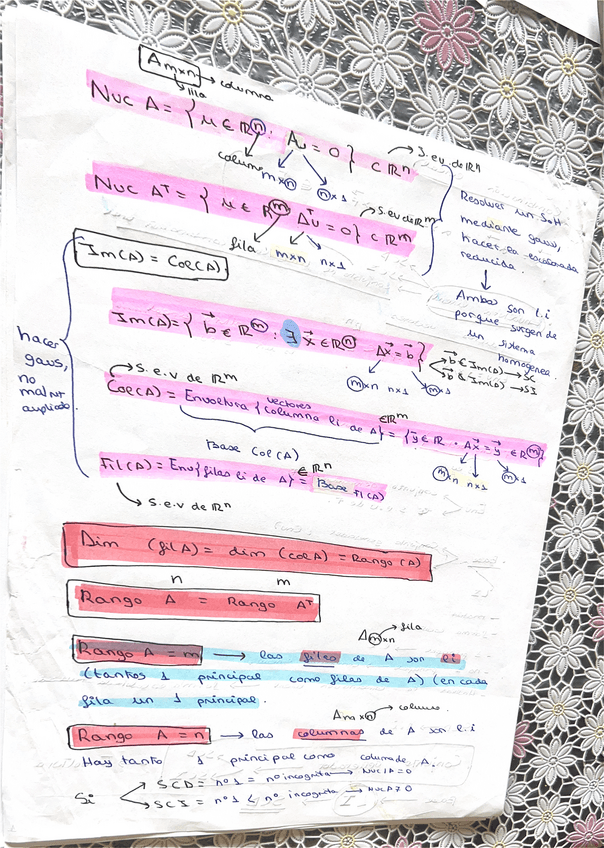 Amxn → columna
fila
Nuc A = { u ∈ ℝⁿ : Au = 0 } ⊂ ℝⁿ → S.e.v de ℝⁿ
columna mxn nx1
Nuc Aᵀ = { u ∈ ℝᵐ Aᵀu = 0 } ⊂ ℝᵐ → S.ev de ℝᵐ
fila mxn nx1
Resolver un S.H
mediante gaus,
hacer la escalonada
reducida.
Ambas son l.i
porque surgen de
un sistema
homogenea.
Im(A) = Col(A)
hacer
gaus,
no
matriz
ampliada.
Im(A) = { b⃗ ∈ ℝᵐ : ∃ x⃗ ∈ ℝⁿ Ax⃗ = b⃗ }
b⃗ ∈ Im(A) → SC
b⃗ ∉ Im(A) → SI
mxn nx1 mx1
S.e.v de ℝᵐ
Col(A) = Envoltura { vectores columna li de A } = { y⃗ ∈ ℝ · Ax⃗ = y⃗ ∈ ℝᵐ }
∈ℝᵐ
Base Col(A)
mxn nx1 mx1
Fil(A) = Env{filas li de A} = Base Fil(A)
∈ ℝⁿ
S.e.v de ℝⁿ
Dim (fil A) = dim (col A) = Rango (A)
n m
Rango A = Rango Aᵀ
Amxn → fila
Rango A = m → las filas de A son li
(tantos 1 principal como filas de A) (en cada
fila un 1 principal.
Amxn → columna
Rango A = n → las columnas de A son l.i
Hay tanto 1 principal como columa de A.
Si
SCD = nº 1 = nº incognita → Nuc A = 0
SCI = nº 1 < nº incognita → Nuc A ≠ 0